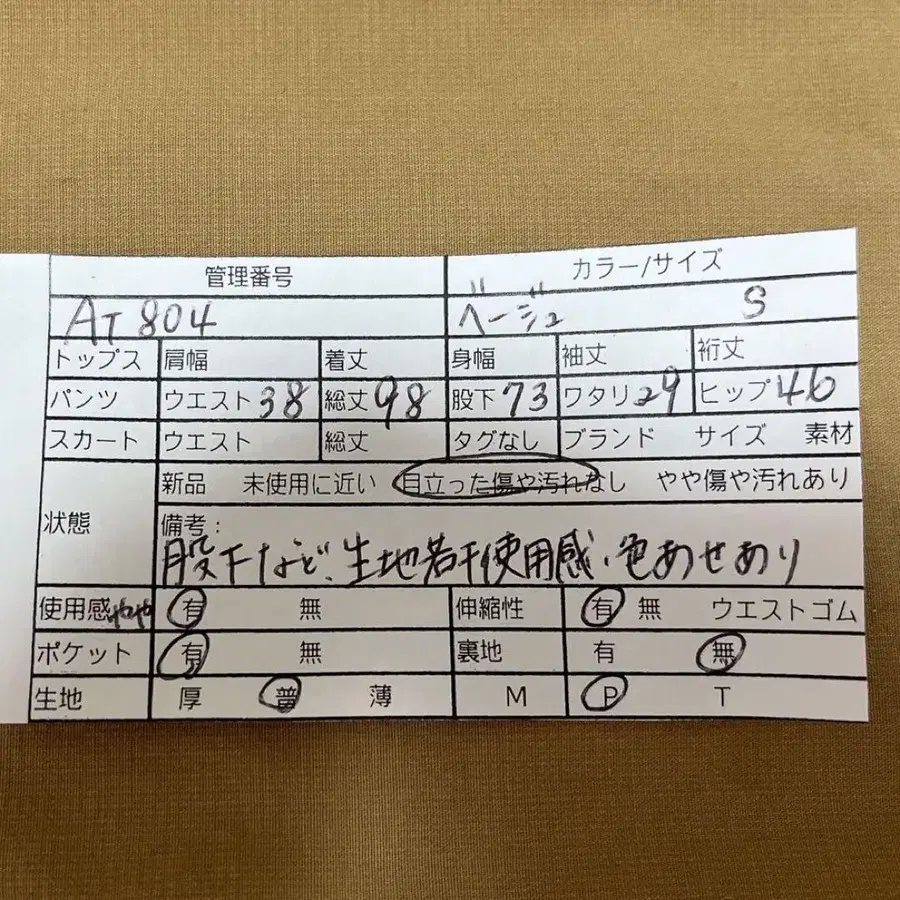 管理番号 カラー/サイズ
AT804 ベージュ S
トップス 肩幅 着丈 身幅 袖丈 裄丈
パンツ ウエスト38 総丈98 股下73 ワタリ29 ヒップ46
スカート ウエスト 総丈 タグなし ブランド サイズ 素材
新品 未使用に近い 目立った傷や汚れなし やや傷や汚れあり
状態 備考:
股下など、生地若干使用感、色あせあり
使用感やや 有 無 伸縮性 有 無 ウエストゴム
ポケット 有 無 裏地 有 無
生地 厚 普 薄 M P T